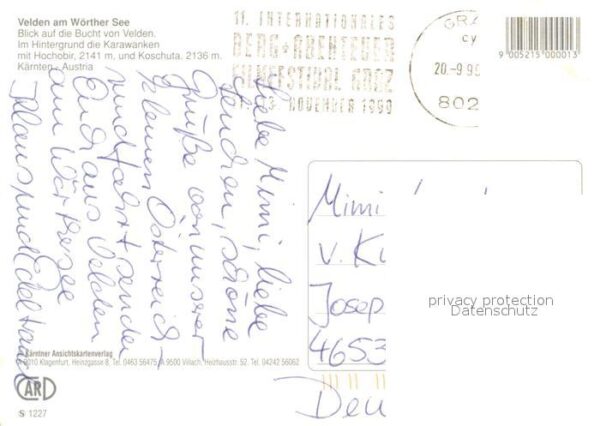 Velden am Wörther See
Blick auf die Bucht von Velden.
Im Hintergrund die Karawanken
mit Hochobir, 2141 m, und Koschuta, 2136 m.
Kärnten - Austria
11. INTERNATIONALES
BERG + ABENTEUER
FILMFESTIVAL GRAZ
NOVEMBER 1999
GRA
20.-9.99
802
9 005215 000013
Liebe Mimi, liebe
schöne
Grüße von unserer
kleinen Österreich-
rundfahrt sendet
Euch aus Velden
am Wörthersee
Klaus und Edeltraud
Mimi
v. K
Josep
4653
Deu
privacy protection
Datenschutz
Kärntner Ansichtskartenverlag
A 9010 Klagenfurt, Heinzgasse 8, Tel. 0463 56475, A 9500 Villach, Heizhausstr. 52, Tel. 04242 56062
CARD
S 1227